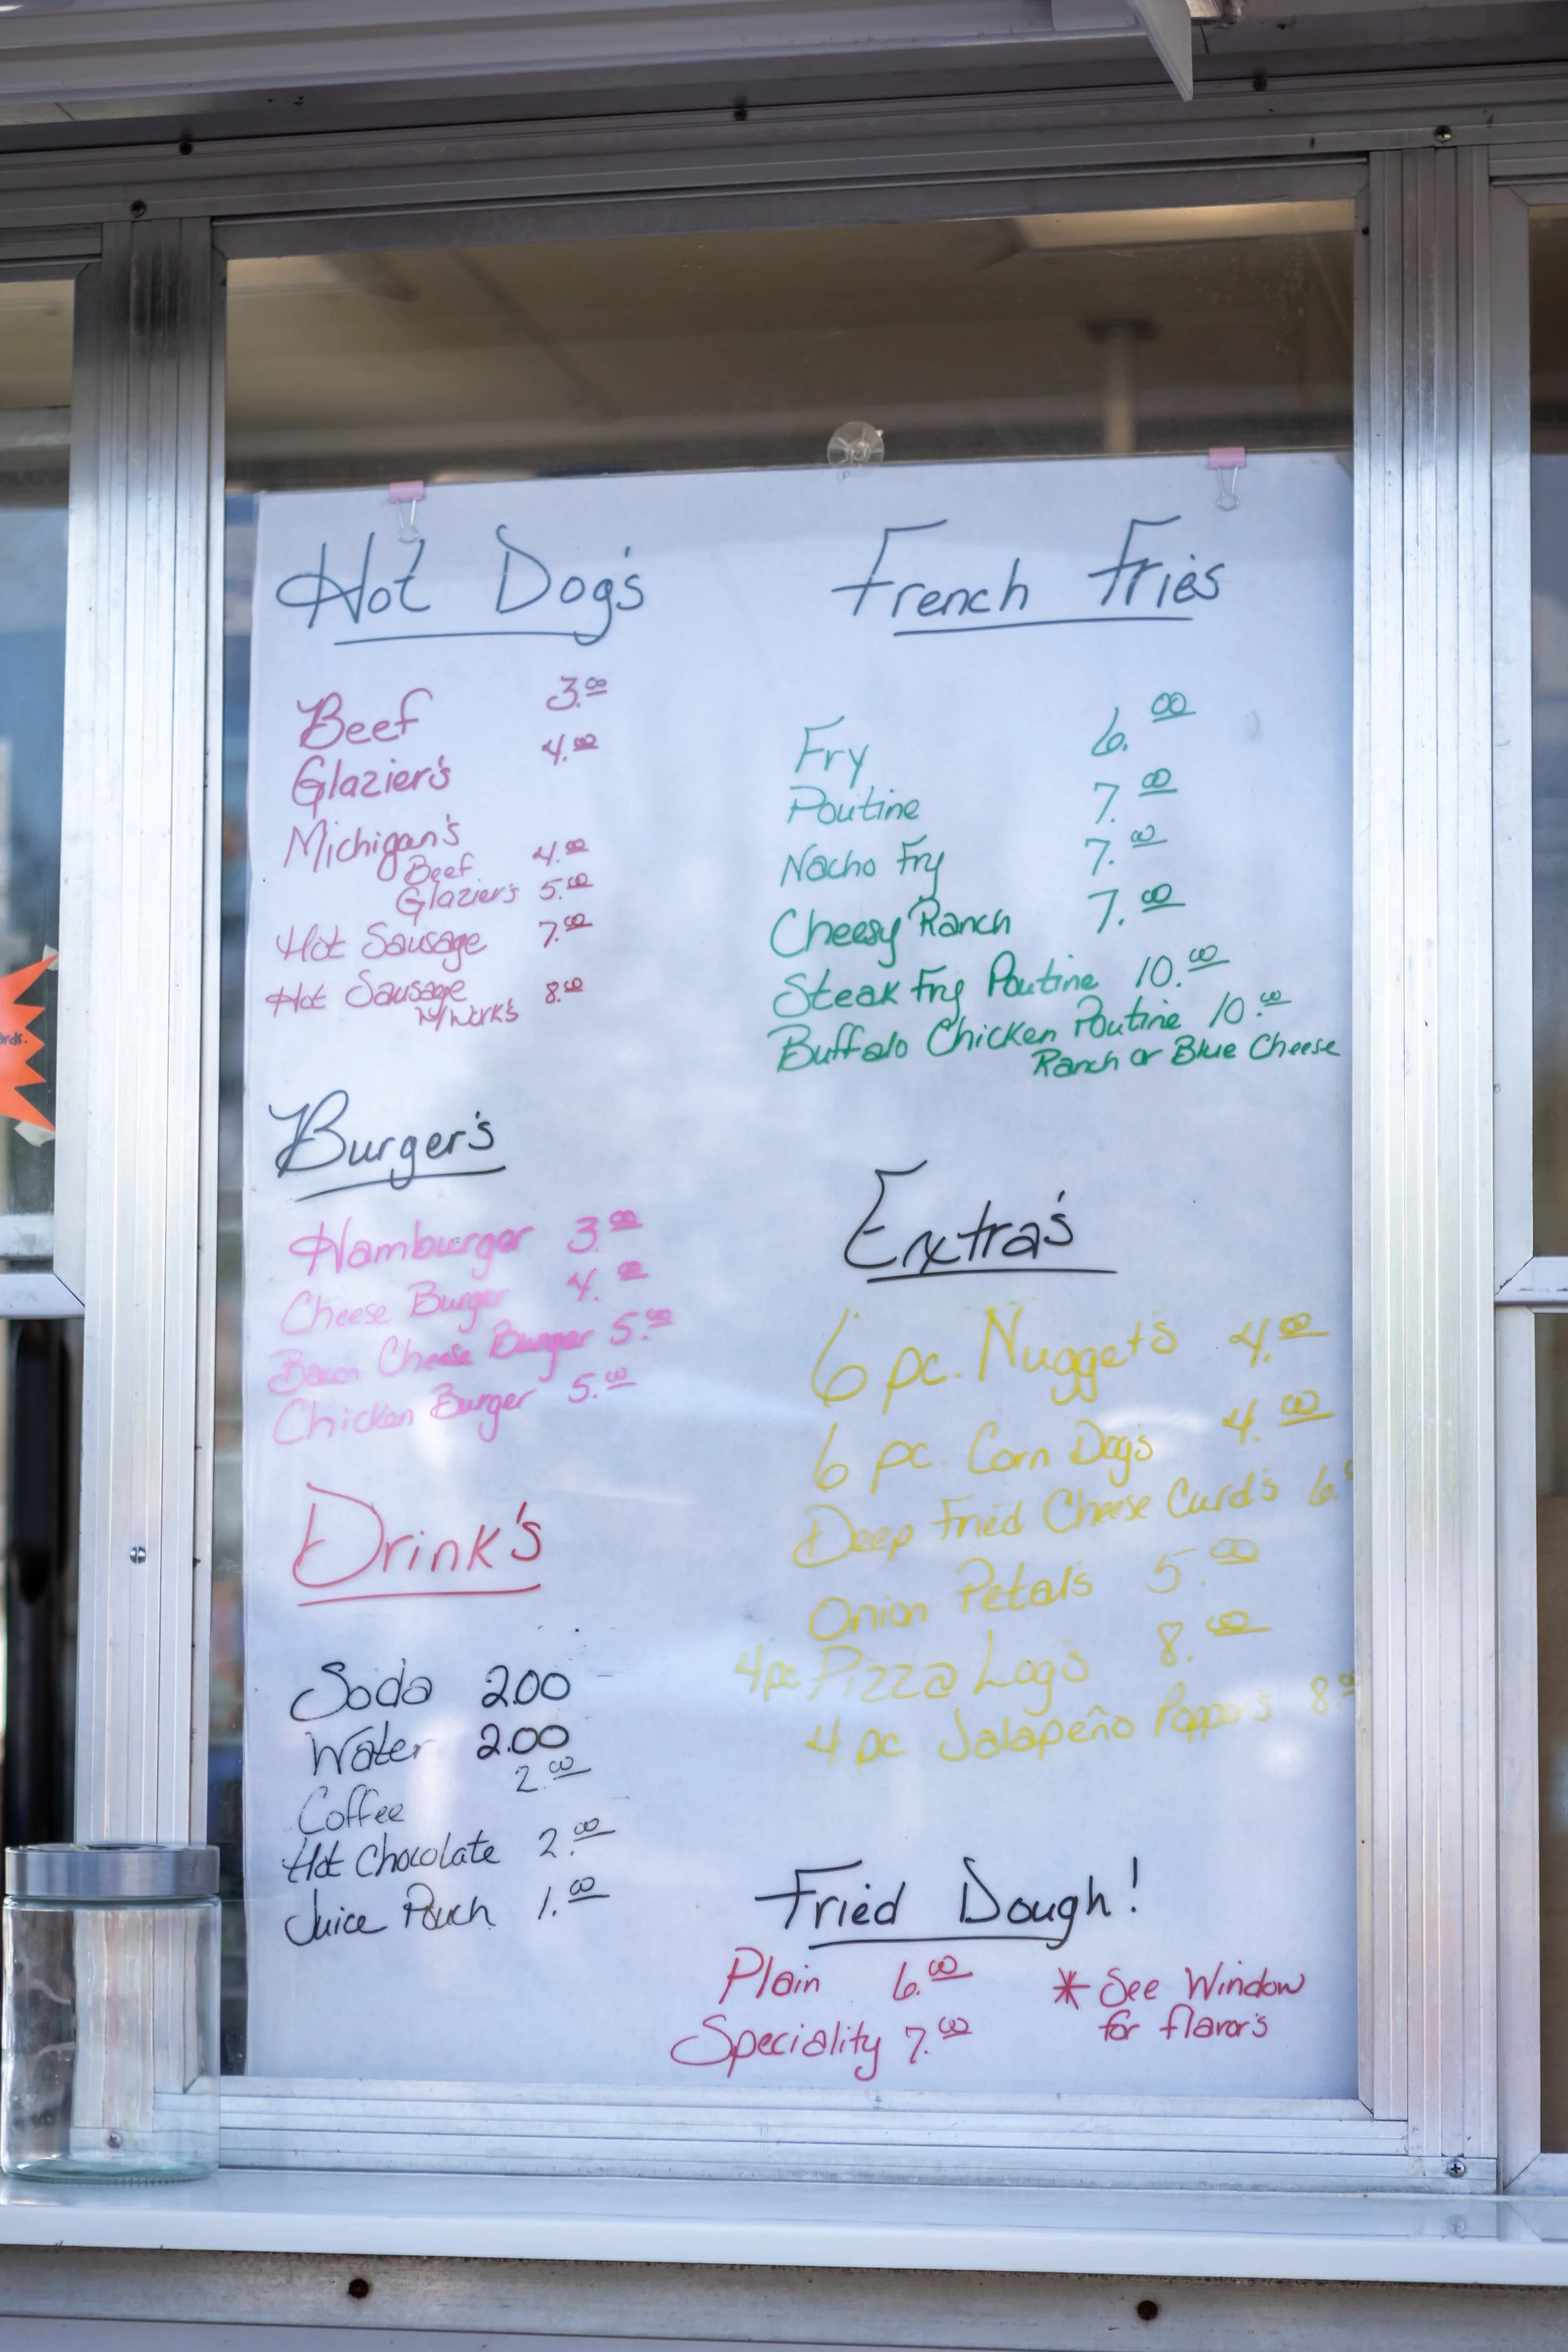 Hot Dog's
Beef 3.00
Glazier's 4.00
Michigan's
Beef 4.00
Glazier's 5.00
Hot Sausage 7.00
Hot Sausage 8.00
w/work's
Burger's
Hamburger 3.00
Cheese Burger 4.00
Bacon Cheese Burger 5.00
Chicken Burger 5.00
Drink's
Soda 2.00
Water 2.00
Coffee 2.00
Hot Chocolate 2.00
Juice Pouch 1.00
French Fries
Fry 6.00
Poutine 7.00
Nacho Fry 7.00
Cheesy Ranch 7.00
Steak Fry Poutine 10.00
Buffalo Chicken Poutine 10.00
Ranch or Blue Cheese
Extra's
6 pc. Nuggets 4.00
6 pc. Corn Dogs 4.00
Deep Fried Cheese Curd's 6.
Onion Petals 5.00
4pc Pizza Logs 8.00
4 pc Jalapeño Popper's 8.00
Fried Dough!
Plain 6.00
Speciality 7.00
* See Window
for flavor's